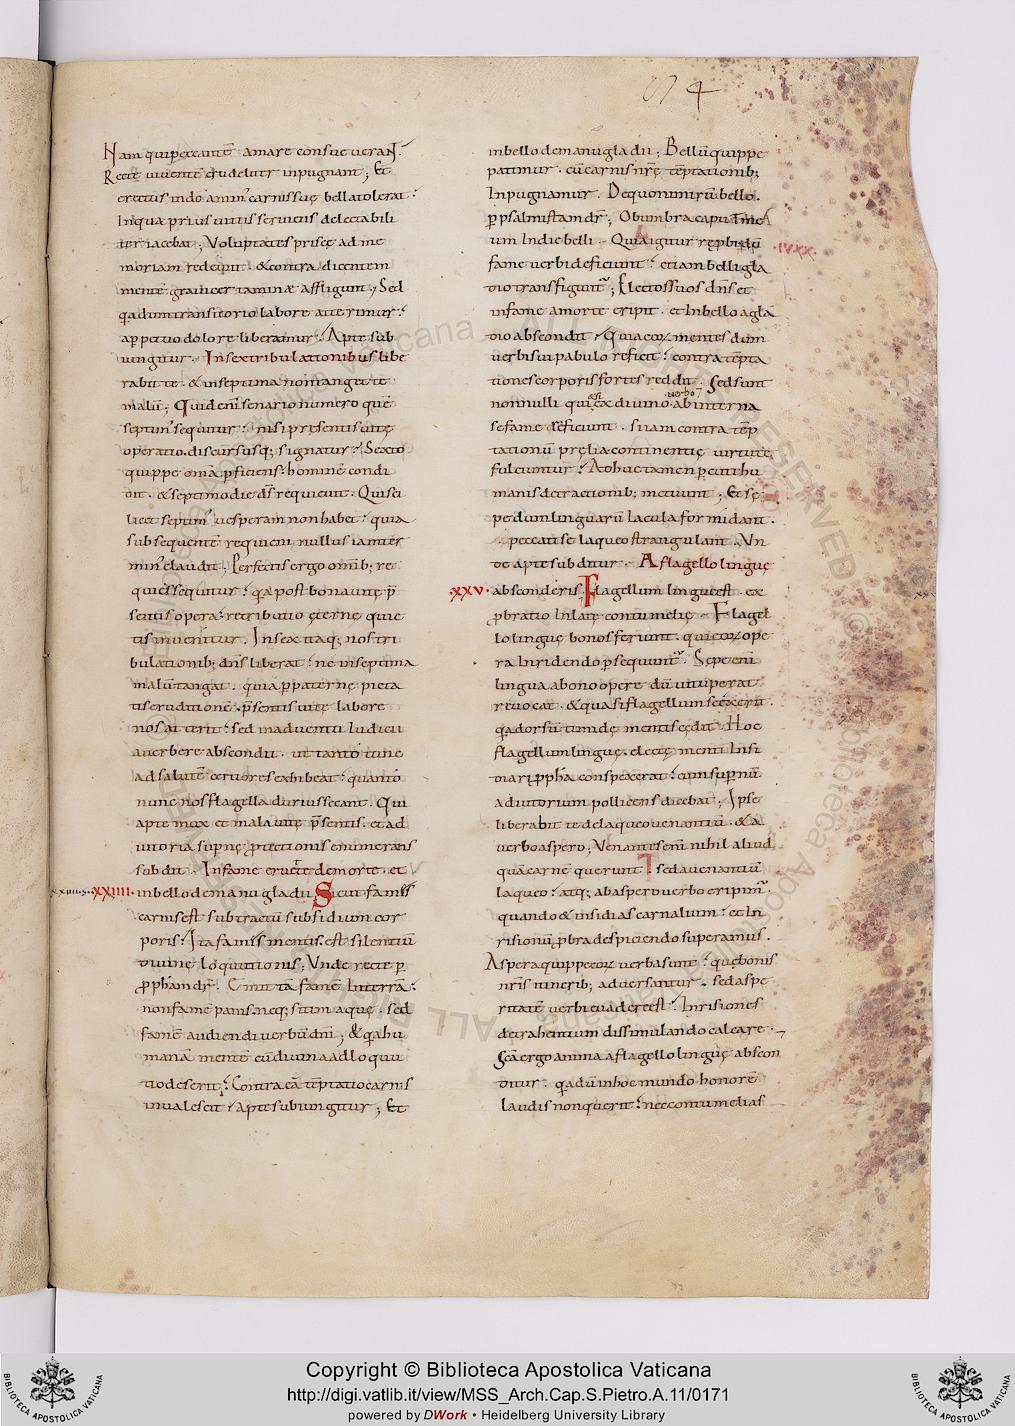 074
Nam qui peccantē amare consueverant.
Recte viventē crudeliter inpugnant; Et
erectus in do amor carnis suę bella tolerat.
In qua prius vitiis serviens delectabili
ter iacebat; Voluptates priscę ad me
moriam redeunt. & contra dicentem
mentē gravi certamine affligunt; Sed
q̄a dum transitorio labore atterimur.
a ppetuo dolore liberamur. Apte sub
iungitur. In sex tribulationibus libe
rabit te. & in septima non tanget te
malū; Quid enī senario numero quē
septim' sequitur. nisi p̄sentis vitę
operatio. discursusq; signatur. Sexto
quippe omā pficiens. hominē condi
dit. & septimo die d̄s requievit. Qui sci
licet septim' vesperam non habet. quia
subsequentē requiem nullus iam ter
min' claudit; Perfectis ergo omīb; re
quies sequitur. q̄a post bona vitę p̄
sentis opera. retributio ęternę quie
tis invenitur. In sex itaq; nos tri
bulationib; dn̄s liberat. ne in septima
malū tangat. quia p paternę pieta
tis eruditionē. p̄sentis vitę labore
nos atterit. sed in adventu iudicii
a verbere abscondit. ut tanto tunc
ad salutē certiores exhibeat. quanto
nunc nos flagella durius secant. Qui
apte mox et mala vitę p̄sentis. et ad
iutoria supnę ptectionis enumerans
subdit. In fame eruet te de morte. et
·xxiiii· in bello de manu gladii Sicut famis
carnis est subtractū subsidium cor
poris. Ita famis mentis. est silentiū
divinę loquutionis; Unde recte p
pphām dr̄. Emittā famē in terrā.
non famē panis. neq; sitim aquę. sed
famē audiendi verbū dn̄i; & q̄a hu
manā mentē cū divina adloquu
tio deserit. Contra eā tēptatio carnis
invalescit. Apte subiungitur; Et
in bello de manu gladii; Bellū quippe
patimur. cū carnis nr̄ę tēptationib;
inpugnamur. De quo nimirū bello.
p psalmistam dr̄; Obumbra caput me
um in die belli. Quia igitur repbi dū
fame verbi deficiunt. etiam belli gla
dio transfigunt'; Electos suos dn̄s et
in fame a morte eripit. et in bello a gla
dio abscondit. Quia eoꝝ mentes dum
verbi sui pabulo reficit. contra tēpta
tiones corporis fortes reddit. Sed sunt
nonnulli qui etsi ex divino verbo ab interna
se fame reficiunt. suam contra tēp
tationū pręlia continentię virtute
fulciuntur. Adhuc tamen pcuti hu
manis detractionib; metuunt; Et sę
pe dum linguarū iacula formidant.
peccati se laqueo strangulant. Un
de apte subditur. A flagello linguę
·xxv· absconderis. Flagellum linguę est. ex
pbratio inlatę contumelię. Flagel
lo linguę bonos feriunt. qui eoꝝ ope
ra inridendo psequunt'. Sępe enī
lingua a bono opere dū vituperat
revocat. & quasi flagellum se exerit.
q̄a dorsū timidę mentis cędit. Hoc
flagellum linguę. electę menti insi
diari pphā conspexerat. cum supnū
adiutorium pollicens dicebat; Ipse
liberabit te de laqueo venantiū. & a
verbo aspero; Venantes enī nihil aliud
quā carnē querunt. sed a venantiū
laqueo. atq; ab aspero verbo eripim'.
quando & insidias carnalium. et in
risionū pbra despiciendo superamus.
Aspera quippe eoꝝ verba sunt. quę bonis
nr̄is itinerib; adversantur. sed aspe
ritatē verbi evadere est. inrisiones
detrahentium dissimulando calcare.
Sc̄a ergo anima a flagello linguę abscon
ditur. q̄a dū in hoc mundo honorē
laudis non querit. nec contumelias
Copyright © Biblioteca Apostolica Vaticana
http://digi.vatlib.it/view/MSS_Arch.Cap.S.Pietro.A.11/0171
powered by DWork • Heidelberg University Library